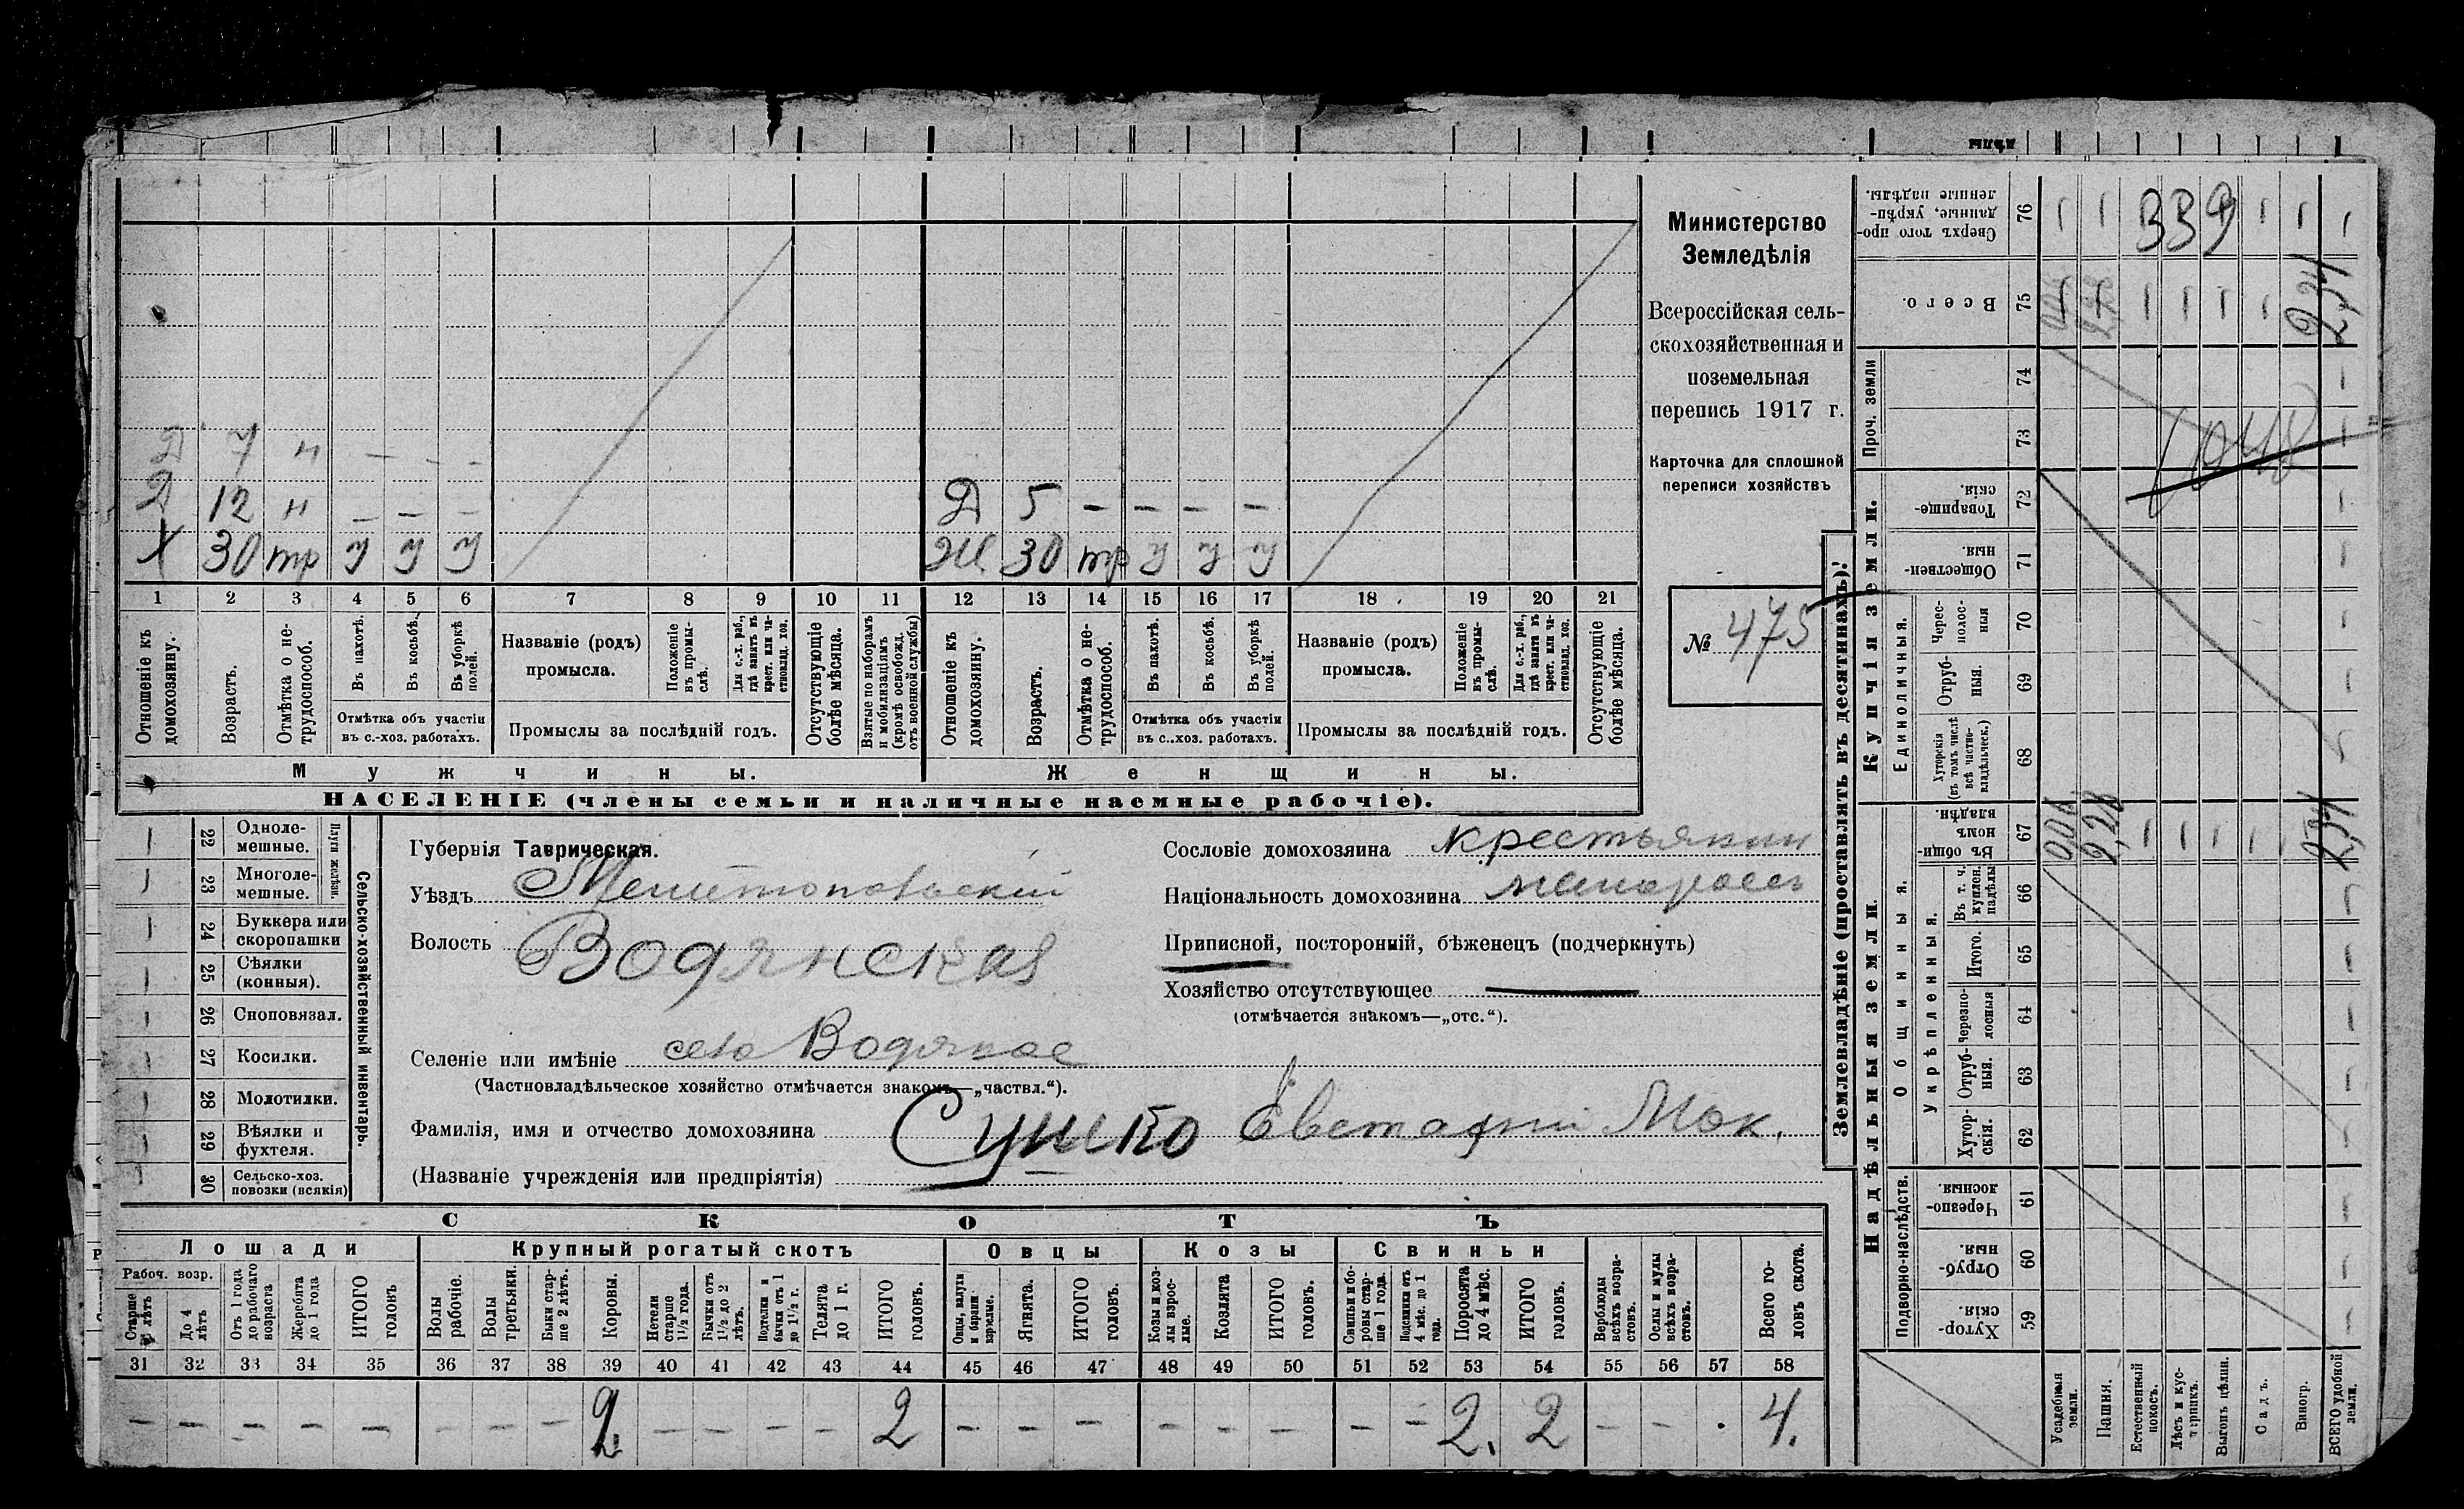 Д 7 н – – –
Д 12 н – – – Д 5 – – – –
Х 30 тр у у у Ж 30 тр у у у
1 2 3 4 5 6 7 8 9 10 11 12 13 14 15 16 17 18 19 20 21
Отношеніе къ домохозяину.
Возрастъ.
Отмѣтка о не-
трудоспособ.
Въ пахотѣ.
Въ косьбѣ.
Въ уборкѣ
полей.
Отмѣтка объ участіи
въ с.-хоз. работахъ.
Названіе (родъ)
промысла.
Положеніе
въ промы-
слѣ.
Для с.-х. раб.,
гдѣ занятъ въ
крест. или ча-
стновлад. хоз.
Промыслы за послѣдній годъ.
Отсутствующіе
болѣе мѣсяца.
Взятые по наборамъ
и мобилизаціямъ
(кромѣ освобожд.
отъ военной службы)
Отношеніе къ
домохозяину.
Возрастъ.
Отмѣтка о не-
трудоспособ.
Въ пахотѣ.
Въ косьбѣ.
Въ уборкѣ
полей.
Отмѣтка объ участіи
въ с.-хоз. работахъ.
Названіе (родъ)
промысла.
Положеніе
въ промы-
слѣ.
Для с.-х. раб.,
гдѣ занятъ въ
крест. или ча-
стновлад. хоз.
Промыслы за послѣдній годъ.
Отсутствующіе
болѣе мѣсяца.
Мужчины. Женщины.
НАСЕЛЕНІЕ (члены семьи и наличные наемные рабочіе).
Министерство
Земледѣлія
Всероссійская сель-
скохозяйственная и
поземельная
перепись 1917 г.
Карточка для сплошной
переписи хозяйствъ
№ 475
22 Одноле-
мешные.
23 Многоле-
мешные.
Плуги желѣзн.
24 Буккера или
скоропашки
25 Сѣялки
(конныя).
26 Сноповязал.
27 Косилки.
28 Молотилки.
29 Вѣялки и
фухтеля.
30 Сельско-хоз.
повозки (всякія)
Сельско-хозяйственный инвентарь.
Губернія Таврическая.
Уѣздъ Мелитопольскій
Волость Водянская
Селеніе или имѣніе село Водяное
(Частновладѣльческое хозяйство отмѣчается знакомъ—„частвл.“).
Фамилія, имя и отчество домохозяина Сушко Евстафій Мак.
(Названіе учрежденія или предпріятія)
Сословіе домохозяина крестьянин
Національность домохозяина малороссъ
Приписной, посторонній, бѣженецъ (подчеркнуть)
Хозяйство отсутствующее —
(отмѣчается знакомъ—„отс.“).
СКОТЪ
Лошади Крупный рогатый скотъ Овцы Козы Свиньи
Рабоч. возр.
Старше
4 лѣтъ
До 4
лѣтъ
Отъ 1 года
до рабочаго
возраста
Жеребята
до 1 года
ИТОГО
головъ
Волы
рабочіе.
Волы
третьяки.
Быки стар-
ше 2 лѣтъ.
Коровы.
Нетели
старше
1½ года.
Бычки отъ
1½ до 2
лѣтъ.
Подтелки и
бычки отъ 1
до 1½ г.
Телята
до 1 г.
ИТОГО
головъ.
Овцы, валухи
и бараны
взрослые.
Ягнята.
ИТОГО
головъ.
Козы и коз-
лы взрос-
лые.
Козлята
ИТОГО
головъ.
Свиньи и бо-
ровы стар-
ше 1 года.
Подсвинки отъ
4 мѣс. до 1
года.
Поросята
до 4 мѣс.
ИТОГО
головъ.
Верблюды
всѣхъ возра-
стовъ.
Ослы и мулы
всѣхъ возра-
стовъ.
Всего го-
ловъ скота.
31 32 33 34 35 36 37 38 39 40 41 42 43 44 45 46 47 48 49 50 51 52 53 54 55 56 57 58
– – – – – – – – 2 – – – – 2 – – – – – – – – 2. 2 – – . 4.
Землевладѣніе (проставлять въ десятинахъ).
Надѣльныя земли. Купчія земли. Проч. земли
Подворно-наслѣдств. Общинныя. Укрѣпленныя. Единоличныя.
Хутор-
скія. 59
Отруб-
ныя. 60
Черезпо-
лосныя. 61
Хутор-
скія. 62
Отруб-
ныя. 63
Черезпо-
лосныя 64
Итого. 65
Въ т. ч.
куплен.
надѣлы 66
Въ общин-
номъ
владѣн. 67
Хуторскія
(въ томъ числѣ
всѣ частно-
владѣльческ.) 68
Отруб-
ныя. 69
Черес-
полос-
ныя 70
Обществен-
ныя. 71
Товарище-
скія. 72
73
74
Всего. 75
Сверхъ того про-
данные, укрѣп-
ленные надѣлы. 76
Усадебная
земли.
Пашня.
Естественный
покосъ.
Лѣсъ и кус-
тарникъ.
Выгонъ цѣлин.
Садъ.
Виногр.
ВСЕГО удобной
земли.
2,28
2,34
2,34
339